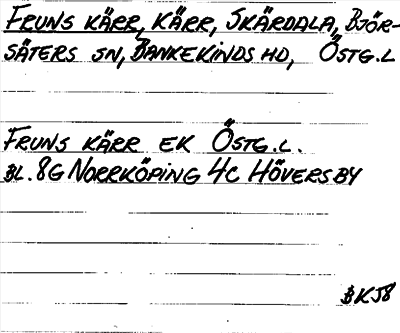 FRUNS KÄRR, KÄRR, SKÄRDALA, BJÖR-
SÄTERS SN, BANKEKINDS HD, ÖSTG.L
FRUNS KÄRR EK ÖSTG.L.
BL. 8G NORRKÖPING 4C HÖVERSBY
BKJ8